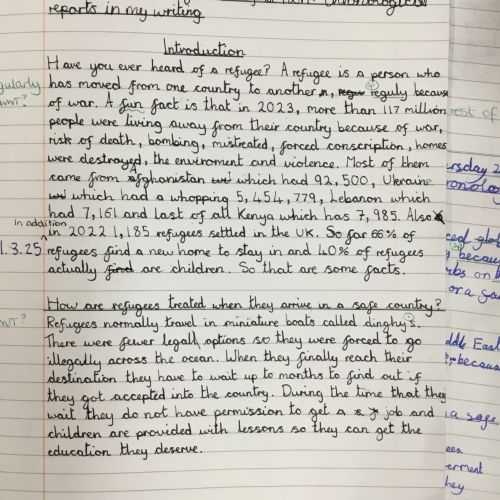 reports in my writing.
Introduction
Have you ever heard of a refugee? A refugee is a person who
has moved from one country to another, reguly because
of war. A fun fact is that in 2023, more than 117 million
people were living away from their country because of war,
risk of death, bombing, mistreated, forced conscription, homes
were destroyed, the enviroment and violence. Most of them
came from Afghanistan which had 92,500, Ukraine
which had a whopping 5,454,779, Lebanon which
had 7,161 and last of all Kenya which has 7,985. Also
In addition
in 2022 1,185 refugees settled in the UK. So far 66% of
1.3.25 refugees find a new home to stay in and 40% of refugees
actually are children. So that are some facts.
How are refugees treated when they arrive in a safe country?
Refugees normally travel in miniature boats called dinghy's.
There were fewer legall options so they were forced to go
illegally across the ocean. When they finally reach their
destination they have to wait up to months to find out if
they got accepted into the country. During the time that they
wait they do not have permission to get a job and
children are provided with lessons so they can get the
education they deserve.
gularly
WWT?
WWT?
rest of
ursday 2
ronolog
because
or a
ddle East
because
a safe
ees.
erment
hey